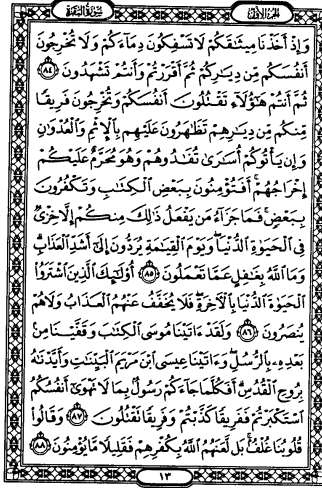 الجزء الأول
سورة البقرة
وَإِذْ أَخَذْنَا مِيثَاقَكُمْ لَا تَسْفِكُونَ دِمَاءَكُمْ وَلَا تُخْرِجُونَ
أَنْفُسَكُمْ مِنْ دِيَارِكُمْ ثُمَّ أَقْرَرْتُمْ وَأَنْتُمْ تَشْهَدُونَ ٨٤
ثُمَّ أَنْتُمْ هَٰؤُلَاءِ تَقْتُلُونَ أَنْفُسَكُمْ وَتُخْرِجُونَ فَرِيقًا
مِنْكُمْ مِنْ دِيَارِهِمْ تَظَاهَرُونَ عَلَيْهِمْ بِالْإِثْمِ وَالْعُدْوَانِ
وَإِنْ يَأْتُوكُمْ أُسَارَىٰ تُفَادُوهُمْ وَهُوَ مُحَرَّمٌ عَلَيْكُمْ
إِخْرَاجُهُمْ أَفَتُؤْمِنُونَ بِبَعْضِ الْكِتَابِ وَتَكْفُرُونَ
بِبَعْضٍ فَمَا جَزَاءُ مَنْ يَفْعَلُ ذَٰلِكَ مِنْكُمْ إِلَّا خِزْيٌ
فِي الْحَيَوٰةِ الدُّنْيَا وَيَوْمَ الْقِيَامَةِ يُرَدُّونَ إِلَىٰ أَشَدِّ الْعَذَابِ
وَمَا اللَّهُ بِغَافِلٍ عَمَّا تَعْمَلُونَ ٨٥ أُولَٰئِكَ الَّذِينَ اشْتَرَوُا
الْحَيَوٰةَ الدُّنْيَا بِالْآخِرَةِ فَلَا يُخَفَّفُ عَنْهُمُ الْعَذَابُ وَلَا هُمْ
يُنْصَرُونَ ٨٦ وَلَقَدْ ءَاتَيْنَا مُوسَى الْكِتَابَ وَقَفَّيْنَا مِنْ
بَعْدِهِ بِالرُّسُلِ وَءَاتَيْنَا عِيسَى ابْنَ مَرْيَمَ الْبَيِّنَاتِ وَأَيَّدْنَاهُ
بِرُوحِ الْقُدُسِ أَفَكُلَّمَا جَاءَكُمْ رَسُولٌ بِمَا لَا تَهْوَىٰ أَنْفُسُكُمُ
اسْتَكْبَرْتُمْ فَفَرِيقًا كَذَّبْتُمْ وَفَرِيقًا تَقْتُلُونَ ٨٧ وَقَالُوا
قُلُوبُنَا غُلْفٌ بَلْ لَعَنَهُمُ اللَّهُ بِكُفْرِهِمْ فَقَلِيلًا مَا يُؤْمِنُونَ ٨٨
١٣